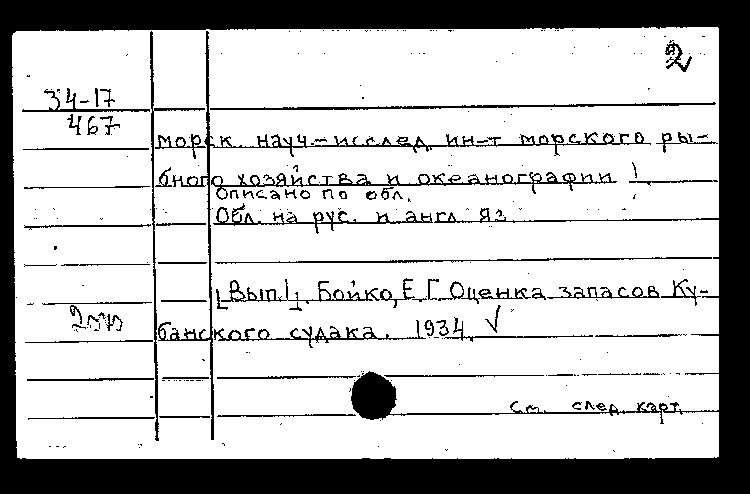 2
34-17
467
морск. науч.-исслед. ин-т морского ры-
бного хозяйства и океанографии).
Описано по обл.
Обл. на рус. и англ. яз.
[Вып.], Бойко, Е. Г. Оценка запасов Ку-
банского судака. 1934. √
См. след. карт.